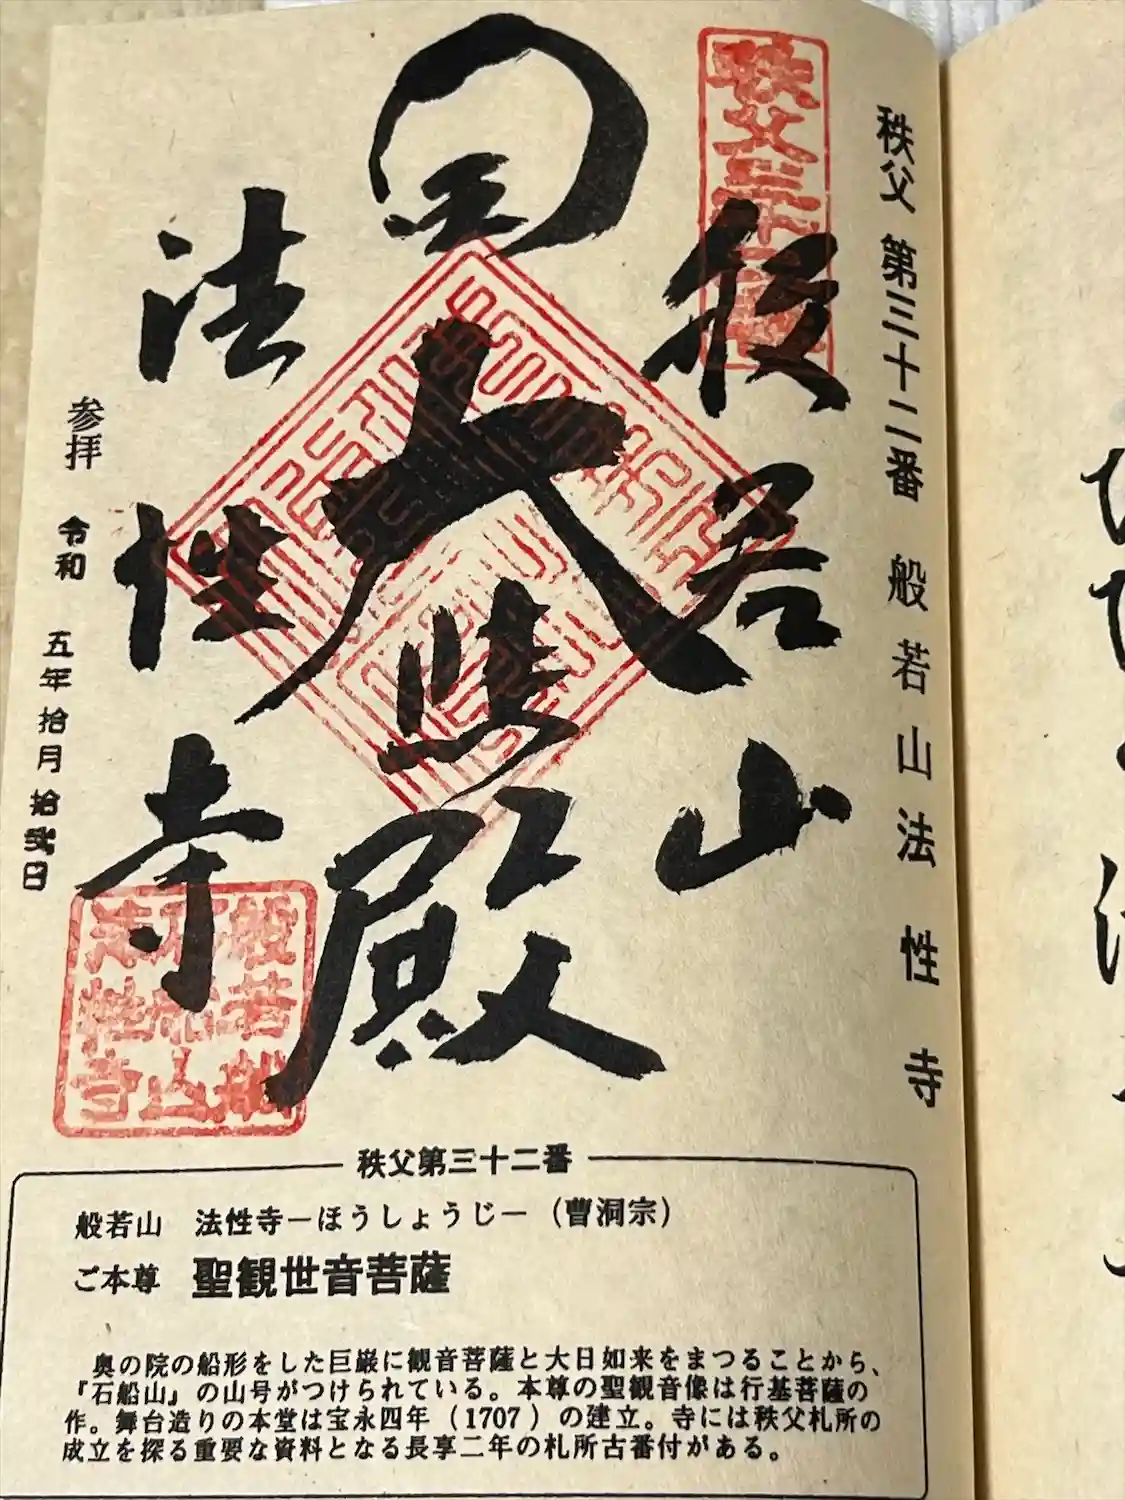 秩父 第三十二番 般若山法性寺
般若山
大悲殿
法性寺
参拝 令和 五年拾月拾弐日
般若
船
石船山
法性寺
秩父第三十二番
般若山 法性寺−ほうしょうじ−(曹洞宗)
ご本尊 聖観世音菩薩
奥の院の船形をした巨巌に観音菩薩と大日如来をまつることから、
『石船山』の山号がつけられている。本尊の聖観音像は行基菩薩の
作。舞台造りの本堂は宝永四年(1707)の建立。寺には秩父札所の
成立を探る重要な資料となる長享二年の札所古番付がある。